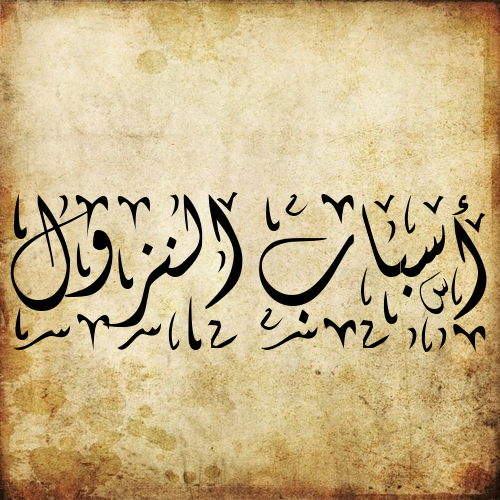 أسباب النزول